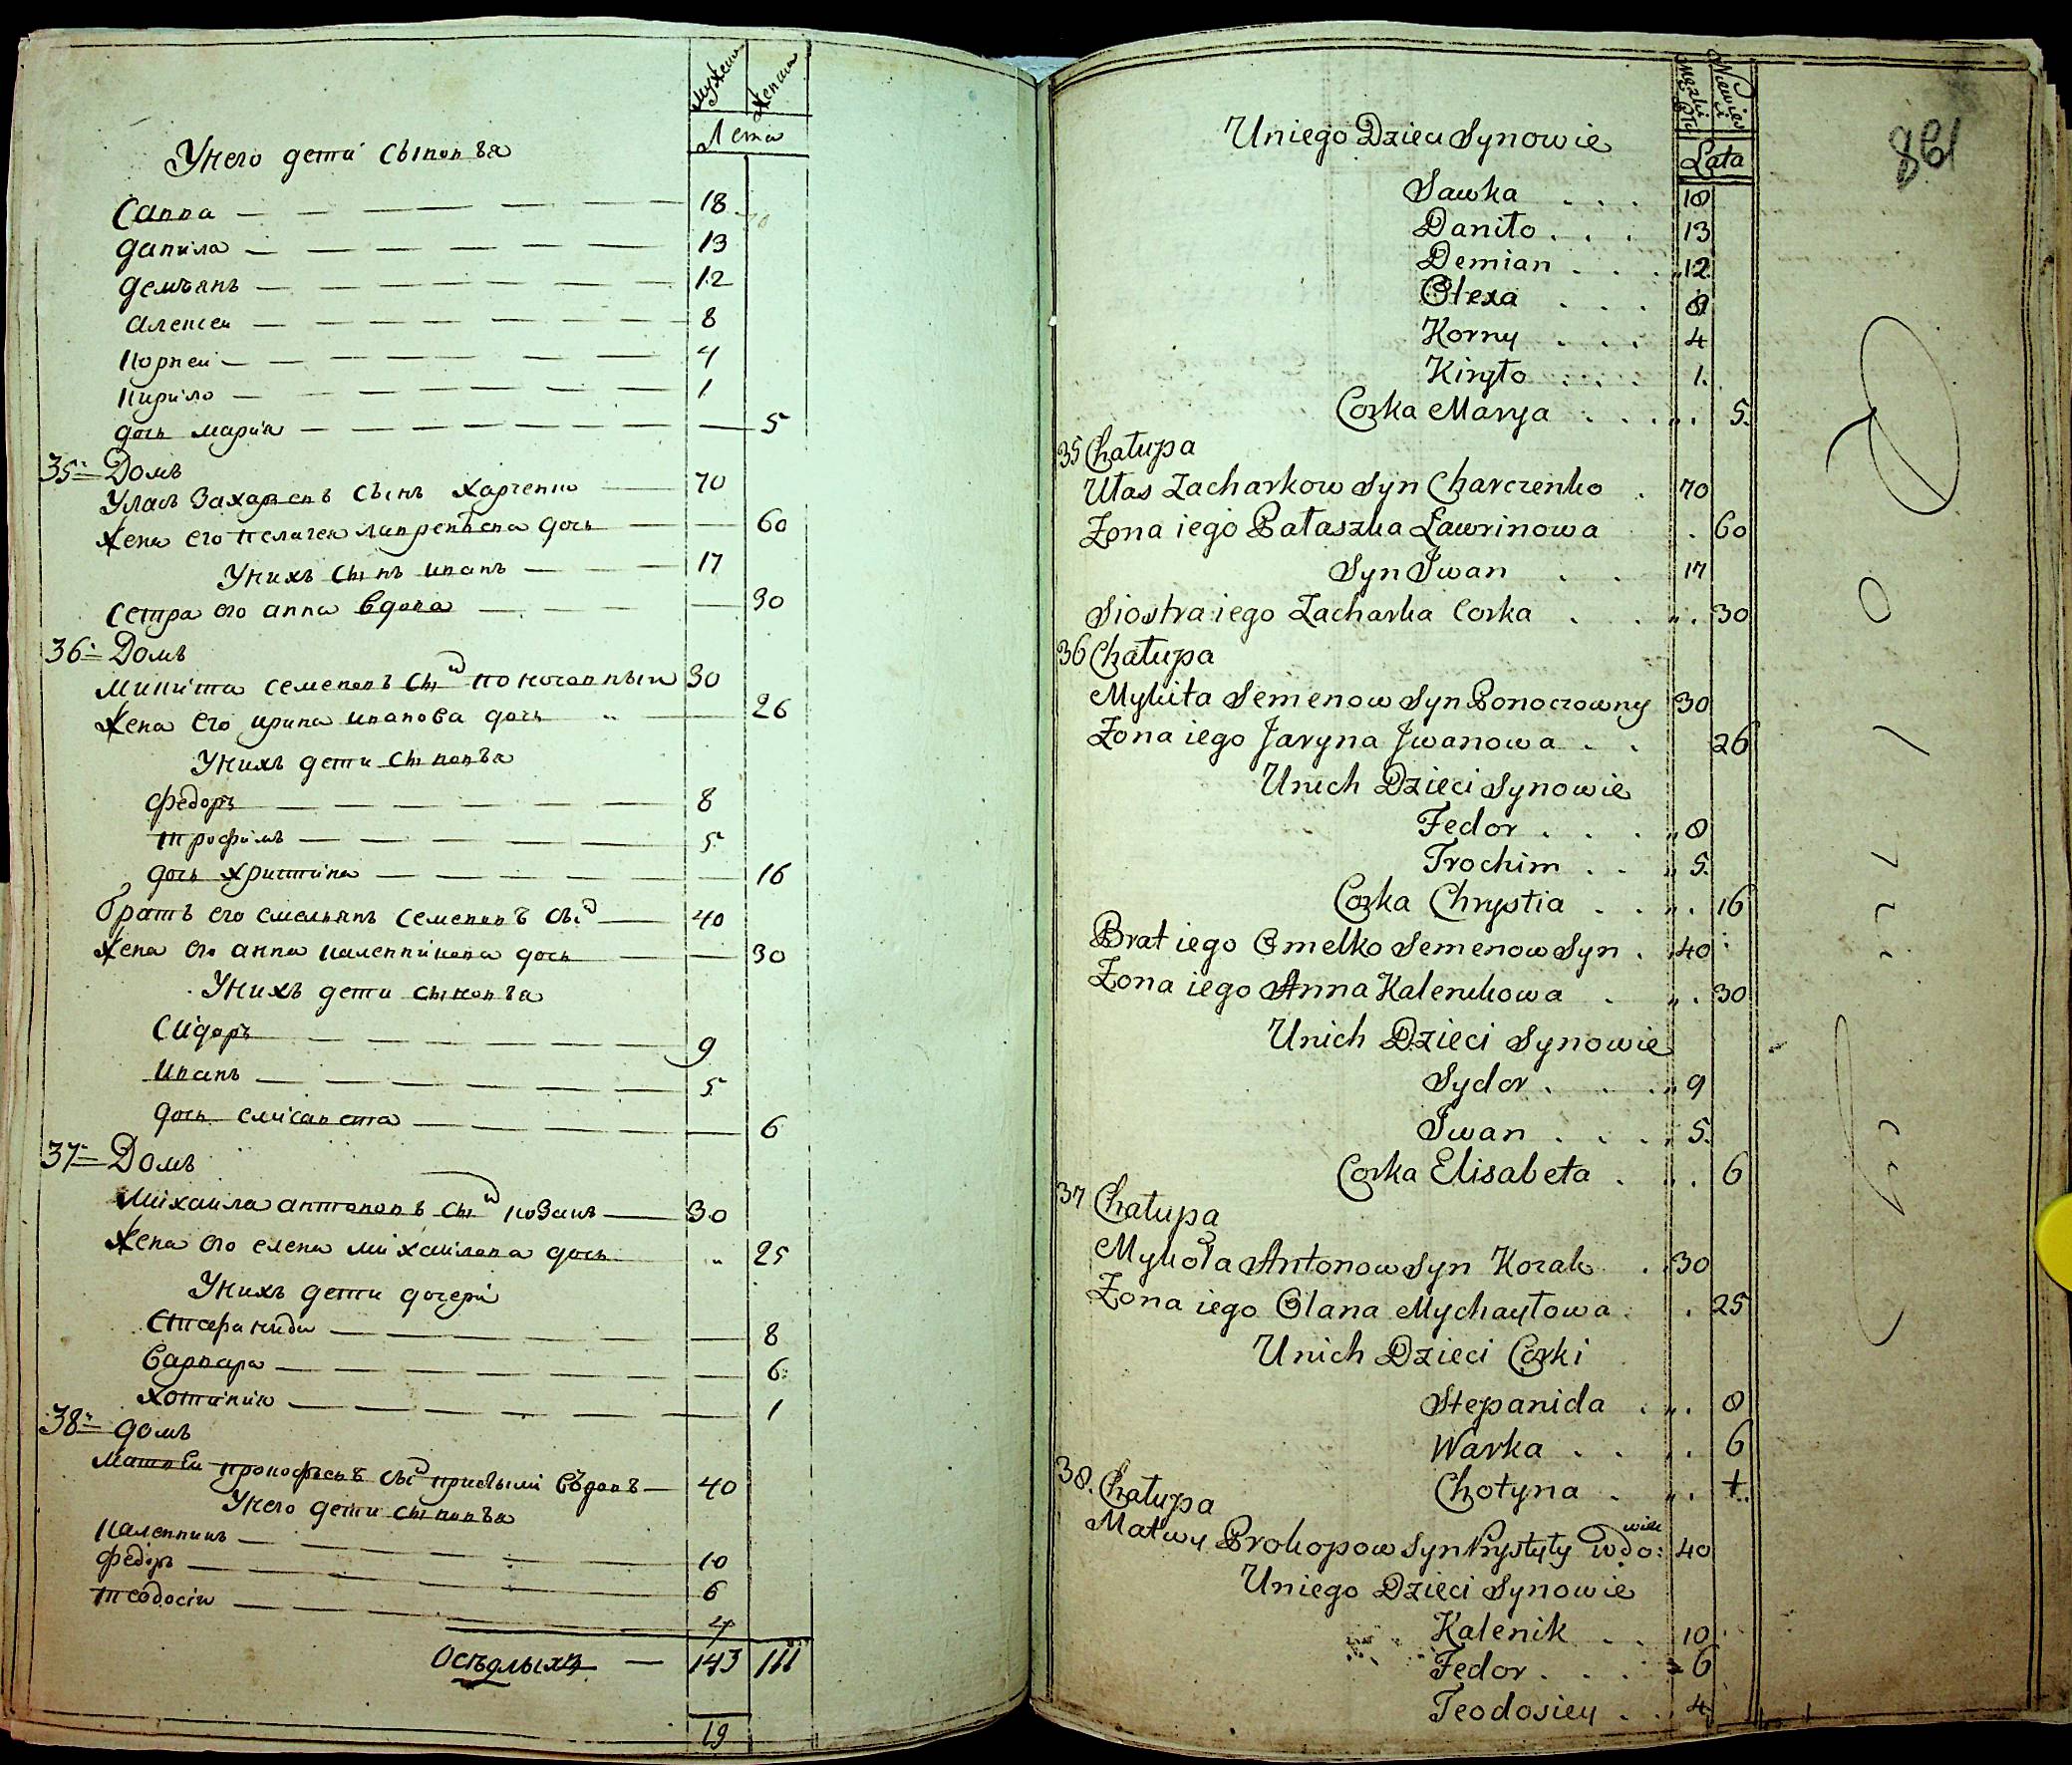 мужеска
женска
Лета
У него дети сыновья
Савва — 18
данила — 13
демъянъ — 12
алексеи — 8
корнеи — 4
кирило — 1
дочь мария — 5
35. Домъ
Уласъ Захаревъ сынъ харченко — 70
жена его пелагея лавренътева дочь — 60
У нихъ сынъ иванъ — 17
сестра его анна вдова — 30
36. Домъ
микита семеновъ сыиъ поночовныи 30
жена его ирина иванова дочь „ — 26
У нихъ дети сыновъя
федоръ — 8
трофимъ — 5
дочь христина — 16
братъ его емельянъ семеновъ сыиъ — 40
жена его анна каленникова дочь — 30
У нихъ дети сыновъя
Сидоръ — 9
иванъ — 5
дочь елисавета — 6
37. Домъ
Михаила антоновъ сыиъ козакъ — 30
жена его елена михаилова дочь „ 25
У нихъ дети дочери
Стефанида — 8
Варвара — 6
хотиния — 1
38. домъ
Матвеи прокофьевъ сыиъ прибылыи въдовъ — 40
У него дети сыновъя
каленникъ — 10
федоръ — 6
теодосии — 4
Оседлыхъ — 143 111
19
Lata
198
Uniego Dzieci Synowie
Sawka . . . 18
Daniło . . . 13
Demian . . . 12
Olexa . . . 8
Korny . . . 4
Kiryło . . . 1.
Corka Marya . . . „ . 5.
35 Chałupa
Ułas Zacharkow Syn Charczenko . 70
Zona iego Pałaszka Ławrinowa . 60
Syn Iwan . . 17
Siostra iego Zacharka Corka . . „ . 30
36 Chałupa
Mykita Semenow Syn Ponoczowny 30
Zona iego Jaryna Jwanowa . . 26
Unich Dzieci Synowie
Fedor . . . „ 8
Trochim . . „ 5.
Corka Chrystia . . „ . 16
Brat iego Omelko Semenow Syn . 40
Zona iego Anna Kalenikowa . „ . 30
Unich Dzieci Synowie
Sydor . . . „ 9
Iwan . . . „ 5.
Corka Elisabeta . „ . 6
37 Chałupa
Mykoła Antonow Syn Kozak . 30
Zona iego Olana Mychayłowa . . 25
Unich Dzieci Corki
Stepanida . „ . 8
Warka . . „ . 6
Chotyna . „ . 1.
38. Chałupa
Matwy Prokopow Syn Prystyły wdowiec 40
Uniego Dzieci Synowie
Kalenik . . 10
Fedor . . . 6
Teodosiey . . 4